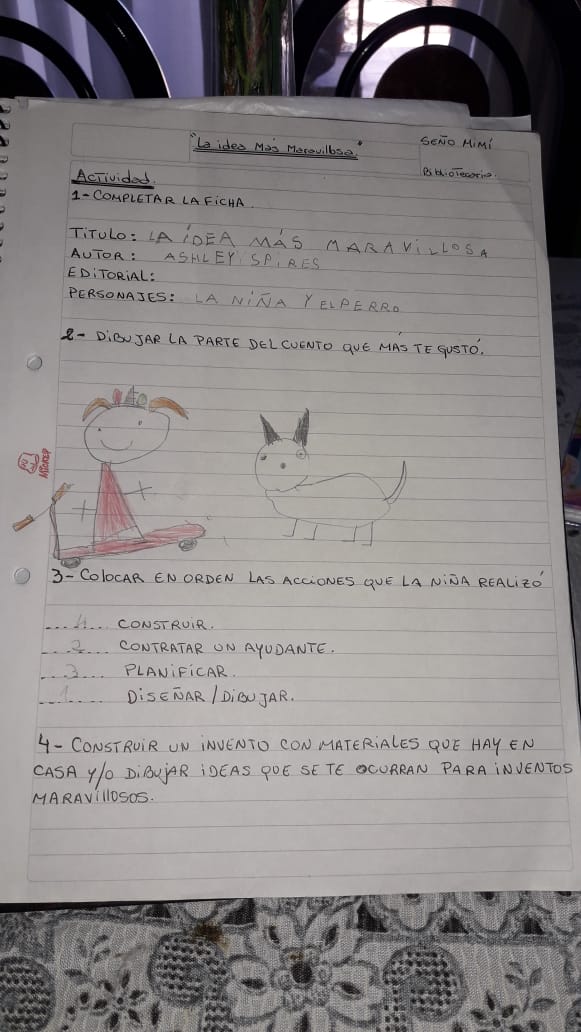 "La idea Más Maravillosa"
SEÑO MIMÍ
BiblioTecaria.
ACTividad.
1-COMPLETAR LA FICHA.
TITULO: LA ÍDEA MÁS MARAVILLOSA
AUTOR: ASHLEY SPIRES
EDITORIAL:
PERSONAJES: LA NIÑA Y EL PERRO
2- DIBUJAR LA PARTE DEL CUENTO QUE MÁS TE GUSTÓ.
3- COLOCAR EN ORDEN LAS ACCIONES QUE LA NIÑA REALIZÓ
...4... CONSTRUIR.
...2... CONTRATAR UN AYUDANTE.
...3... PLANIFICAR.
...1... DISEÑAR/DIBUJAR.
4- CONSTRUIR UN INVENTO CON MATERIALES QUE HAY EN
CASA Y/O DIBUJAR IDEAS QUE SE TE OCURRAN PARA INVENTOS
MARAVILLOSOS.